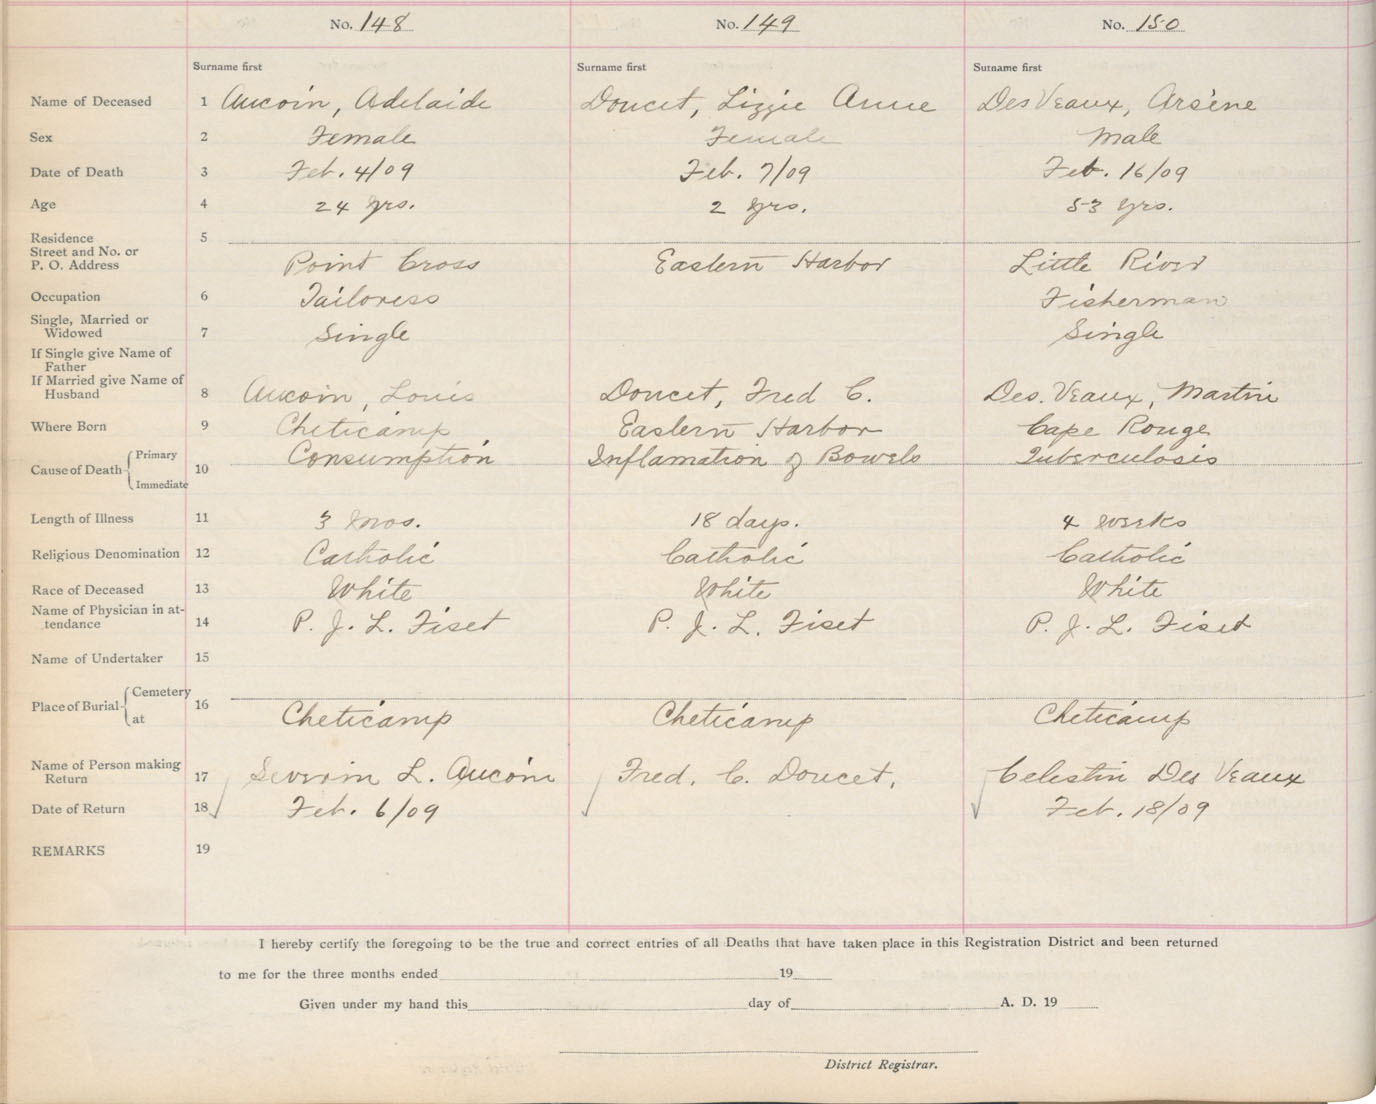 No. 148 No. 149 No. 150
Surname first Surname first Surname first
Name of Deceased 1 Aucoin, Adelaide Doucet, Lizzie Anne DesVeaux, Arsène
Sex 2 Female Female Male
Date of Death 3 Feb. 4/09 Feb. 7/09 Feb. 16/09
Age 4 24 yrs. 2 yrs. 53 yrs.
Residence 5
Street and No. or
P. O. Address Point Cross Eastern Harbor Little River
Occupation 6 Tailoress Fisherman
Single, Married or
Widowed 7 Single Single
If Single give Name of
Father
If Married give Name of
Husband 8 Aucoin, Louis Doucet, Fred C. Des. Veaux, Martin
Where Born 9 Cheticamp Eastern Harbor Cape Rouge
Cause of Death Primary 10 Consumption Inflamation of Bowels Tuberculosis
Immediate
Length of Illness 11 3 mos. 18 days. 4 weeks
Religious Denomination 12 Catholic Catholic Catholic
Race of Deceased 13 White White White
Name of Physician in at-
tendance 14 P. J. L. Fiset P. J. L. Fiset P. J. L. Fiset
Name of Undertaker 15
Place of Burial Cemetery 16
at Cheticamp Cheticamp Cheticamp
Name of Person making
Return 17 Severin L. Aucoin Fred. C. Doucet, Celestin Des Veaux
Date of Return 18 Feb. 6/09 Feb. 18/09
REMARKS 19
I hereby certify the foregoing to be the true and correct entries of all Deaths that have taken place in this Registration District and been returned
to me for the three months ended 19
Given under my hand this day of A. D. 19
District Registrar.